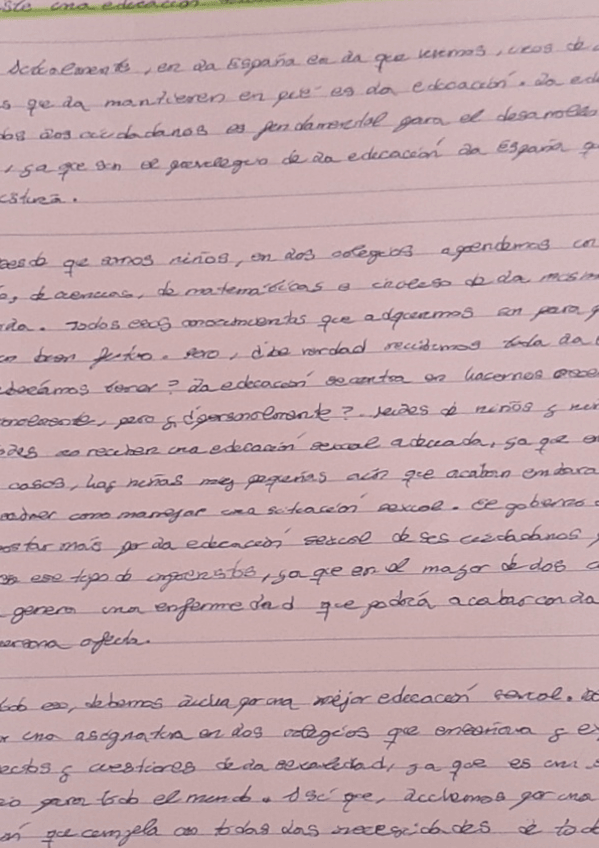 una educación
Actualmente, en la España en la que vivimos, unos de
s que la mantienen en pie es la educación. La edu
los ciudadanos es fundamental para el desarrollo
, ya que sin el privilegio de la educación la España q
Desde que somos niños, en los colegios aprendemos con
, de ciencias, de matemáticas e incluso de la misma
Todos esos conocimientos que adquirimos son para
buen futuro. Pero, ¿de verdad recibimos toda la
tener? La educación se centra en hacernos
pero ¿y personalmente? Miles de niños y niñ
no reciben una educación sexual adecuada, ya que e
casos, hay niñas muy pequeñas aún que acaban embara
como manejar una situación sexual. El gobierno
más por la educación sexual de ses ciudadanos
ese tipo de ya que en el mayor de los
genera una enfermedad que podrá acabar con la
persona afecta.
eso, debemos luchar por una mejor educación sexual.
una asignatura en los colegios que enseñara y ex
y cuestiones de la sexualidad, ya que es un
para todo el mundo. Así que, luchemos por una
que cumpla con todas las necesidades de tod